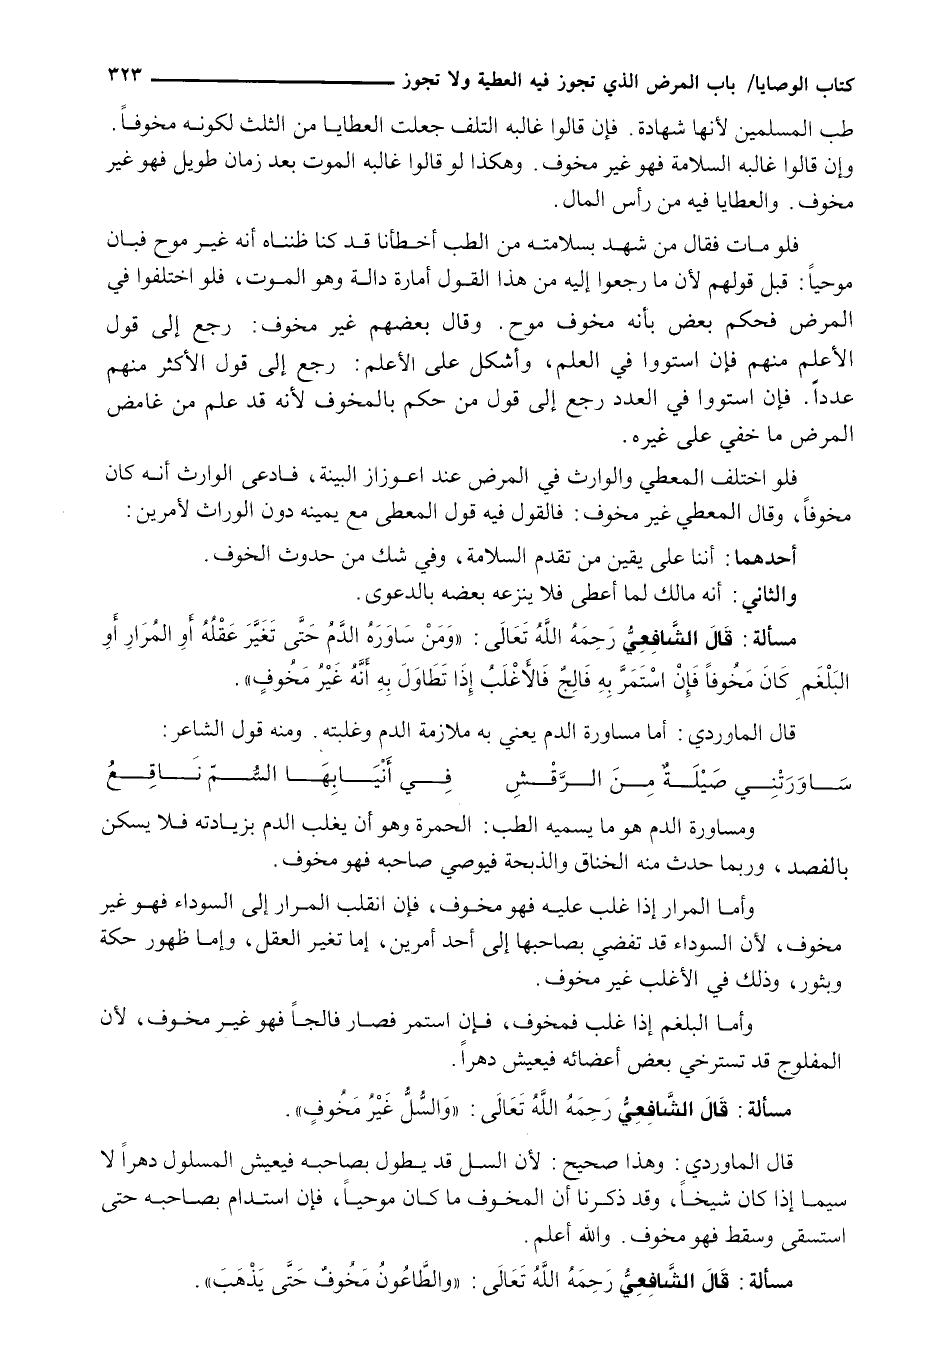 كتاب الوصايا/ باب المرض الذي تجوز فيه العطية ولا تجوز ٣٢٣
طب المسلمين لأنها شهادة. فإن قالوا غالبه التلف جعلت العطايا من الثلث لكونه مخوفاً.
وإن قالوا غالبه السلامة فهو غير مخوف. وهكذا لو قالوا غالبه الموت بعد زمان طويل فهو غير
مخوف. والعطايا فيه من رأس المال.
فلو مات فقال من شهد بسلامته من الطب أخطأنا قد كنا ظنناه أنه غير موح فبان
موحياً: قبل قولهم لأن ما رجعوا إليه من هذا القول أمارة دالة وهو الموت، فلو اختلفوا في
المرض فحكم بعض بأنه مخوف موح. وقال بعضهم غير مخوف: رجع إلى قول
الأعلم منهم فإن استووا في العلم، وأشكل على الأعلم: رجع إلى قول الأكثر منهم
عدداً. فإن استووا في العدد رجع إلى قول من حكم بالمخوف لأنه قد علم من غامض
المرض ما خفي على غيره.
فلو اختلف المعطي والوارث في المرض عند اعوزاز البينة، فادعى الوارث أنه كان
مخوفاً، وقال المعطي غير مخوف: فالقول فيه قول المعطى مع يمينه دون الوراث لأمرين:
أحدهما: أننا على يقين من تقدم السلامة، وفي شك من حدوث الخوف.
والثاني: أنه مالك لما أعطى فلا ينزعه بعضه بالدعوى.
مسألة: قَالَ الشَّافِعِيُّ رَحِمَهُ اللَّهُ تَعَالَى: «وَمَنْ سَاوَرَهُ الدَّمُ حَتَّى تَغَيَّرَ عَقْلُهُ أَوِ المُرَارِ أَوِ
البَلْغَمِ كَانَ مَخُوفاً فَإِنْ اسْتَمَرَّ بِهِ فَالِجٌ فَالأَغْلَبُ إِذَا تَطَاوَلَ بِهِ أَنَّهُ غَيْرُ مَخُوفٍ».
قال الماوردي: أما مساورة الدم يعني به ملازمة الدم وغلبته. ومنه قول الشاعر:
سَاوَرَتْنِي صَيْلَةٌ مِنَ الرَّقْشِ فِي أَنْيَابِهَا السُّمّ نَاقِعُ
ومساورة الدم هو ما يسميه الطب: الحمرة وهو أن يغلب الدم بزيادته فلا يسكن
بالفصد، وربما حدث منه الخناق والذبحة فيوصي صاحبه فهو مخوف.
وأما المرار إذا غلب عليه فهو مخوف، فإن انقلب المرار إلى السوداء فهو غير
مخوف، لأن السوداء قد تفضي بصاحبها إلى أحد أمرين، إما تغير العقل، وإما ظهور حكة
وبثور، وذلك في الأغلب غير مخوف.
وأما البلغم إذا غلب فمخوف، فإن استمر فصار فالجاً فهو غير مخوف، لأن
المفلوج قد تسترخي بعض أعضائه فيعيش دهراً.
مسألة: قَالَ الشَّافِعِيُّ رَحِمَهُ اللَّهُ تَعَالَى: «وَالسُّلُّ غَيْرُ مَخُوفٍ».
قال الماوردي: وهذا صحيح: لأن السل قد يطول بصاحبه فيعيش المسلول دهراً لا
سيما إذا كان شيخاً، وقد ذكرنا أن المخوف ما كان موحياً، فإن استدام بصاحبه حتى
استسقى وسقط فهو مخوف. والله أعلم.
مسألة: قَالَ الشَّافِعِيُّ رَحِمَهُ اللَّهُ تَعَالَى: «والطَّاعُونُ مَخُوفٌ حَتَّى يَذْهَبَ».